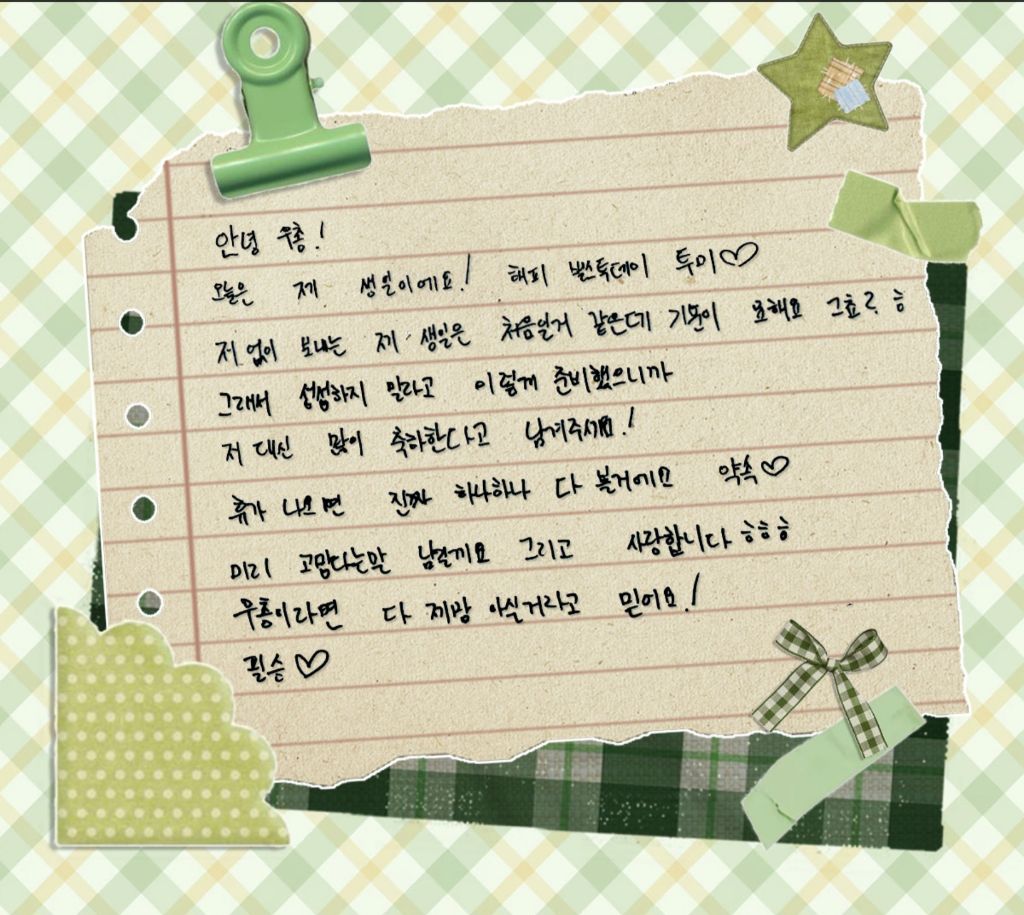 안녕 우총!
오늘은 제 생일이에요! 해피 벌스둑데이 투미♡
저 없이 보내는 제 생일은 처음일거 같은데 기분이 묘해요 그쵸? ㅎ
그래서 섭섭하지 말라고 이렇게 준비했으니까
저 대신 많이 축하한다고 남겨주세요!
휴가 나오면 진짜 하나하나 다 볼거에요 약속♡
미리 고맙다는말 남길게요 그리고 사랑합니다 ㅎㅎㅎ
우총이라면 다 제맘 아실거라고 믿어요!
필승♡